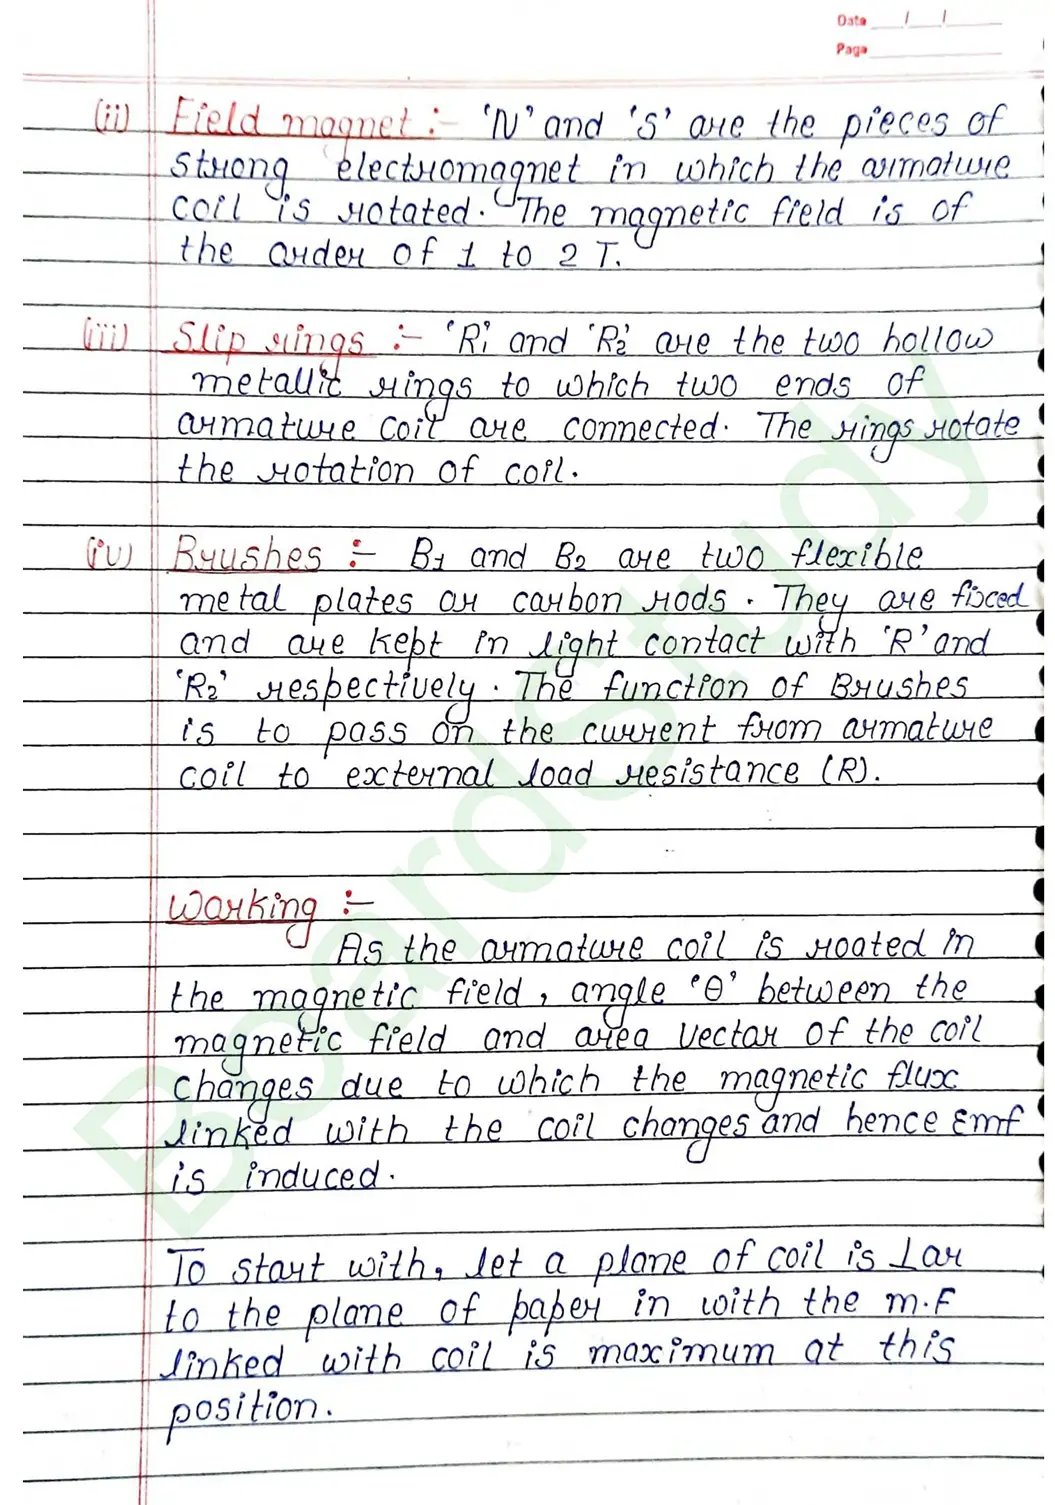 Date / /
Page
(ii) Field magnet :- 'N' and 'S' are the pieces of
strong electromagnet in which the armature
coil is rotated. The magnetic field is of
the order of 1 to 2 T.
(iii) Slip rings :- 'R₁' and 'R₂' are the two hollow
metallic rings to which two ends of
armature coil are connected. The rings rotate
the rotation of coil.
(iv) Brushes :- B₁ and B₂ are two flexible
metal plates or carbon rods. They are fixed
and are kept in light contact with 'R' and
'R₂' respectively. The function of Brushes
is to pass on the current from armature
coil to external load resistance (R).
Working :-
As the armature coil is roated in
the magnetic field, angle 'θ' between the
magnetic field and area vector of the coil
changes due to which the magnetic flux
linked with the coil changes and hence Emf
is induced.
To start with, let a plane of coil is ⊥ar
to the plane of paper in with the m.F
linked with coil is maximum at this
position.
BoardStudy